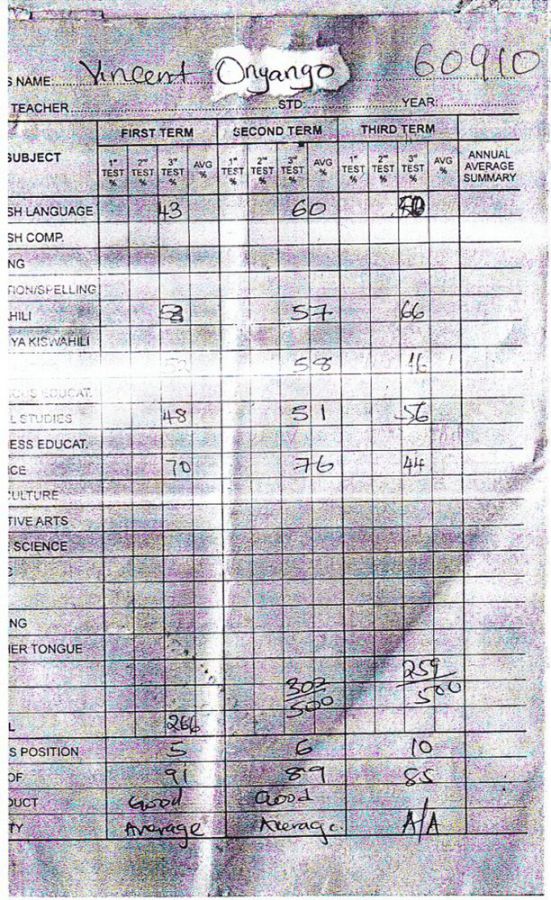 S NAME: Vincent Onyango 60910
TEACHER STD: YEAR:
SUBJECT FIRST TERM SECOND TERM THIRD TERM ANNUAL AVERAGE SUMMARY
1st TEST % 2nd TEST % 3rd TEST % AVG % 1st TEST % 2nd TEST % 3rd TEST % AVG % 1st TEST % 2nd TEST % 3rd TEST % AVG %
SH LANGUAGE 43 60
SH COMP.
NG
TION/SPELLING
HILI 57 66
YA KISWAHILI
58
OUS EDUCAT.
L STUDIES 48 51 56
ESS EDUCAT.
CE 70 76 44
CULTURE
TIVE ARTS
SCIENCE
NG
HER TONGUE
302/500 259/500
L 266
S POSITION 5 6 10
OF 91 89 85
DUCT Good Good
TY Average Average. A/A